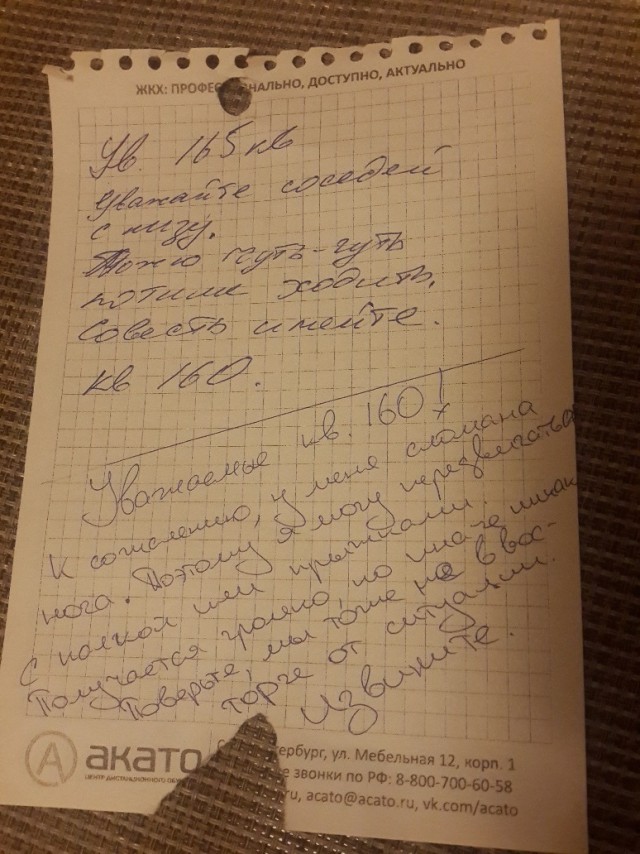 ЖКХ: ПРОФЕС НАЛЬНО, ДОСТУПНО, АКТУАЛЬНО
Ув. 165 кв
Уважайте соседей
с низу.
Можно чуть-чуть
потише ходить.
Совесть имейте.
кв 160.
Уважаемые кв. 160!
К сожалению, у меня сломана
нога. Поэтому я могу передвигаться
с палкой или прыжками.
Получается громко, но иначе никак
Поверьте, мы тоже не в вос-
торге от ситуации.
Извините.
акато
ЦЕНТР ДИСТАНЦИОННОГО
ербург, ул. Мебельная 12, корп. 1
е звонки по РФ: 8-800-700-60-58
ru, acato@acato.ru, vk.com/acato